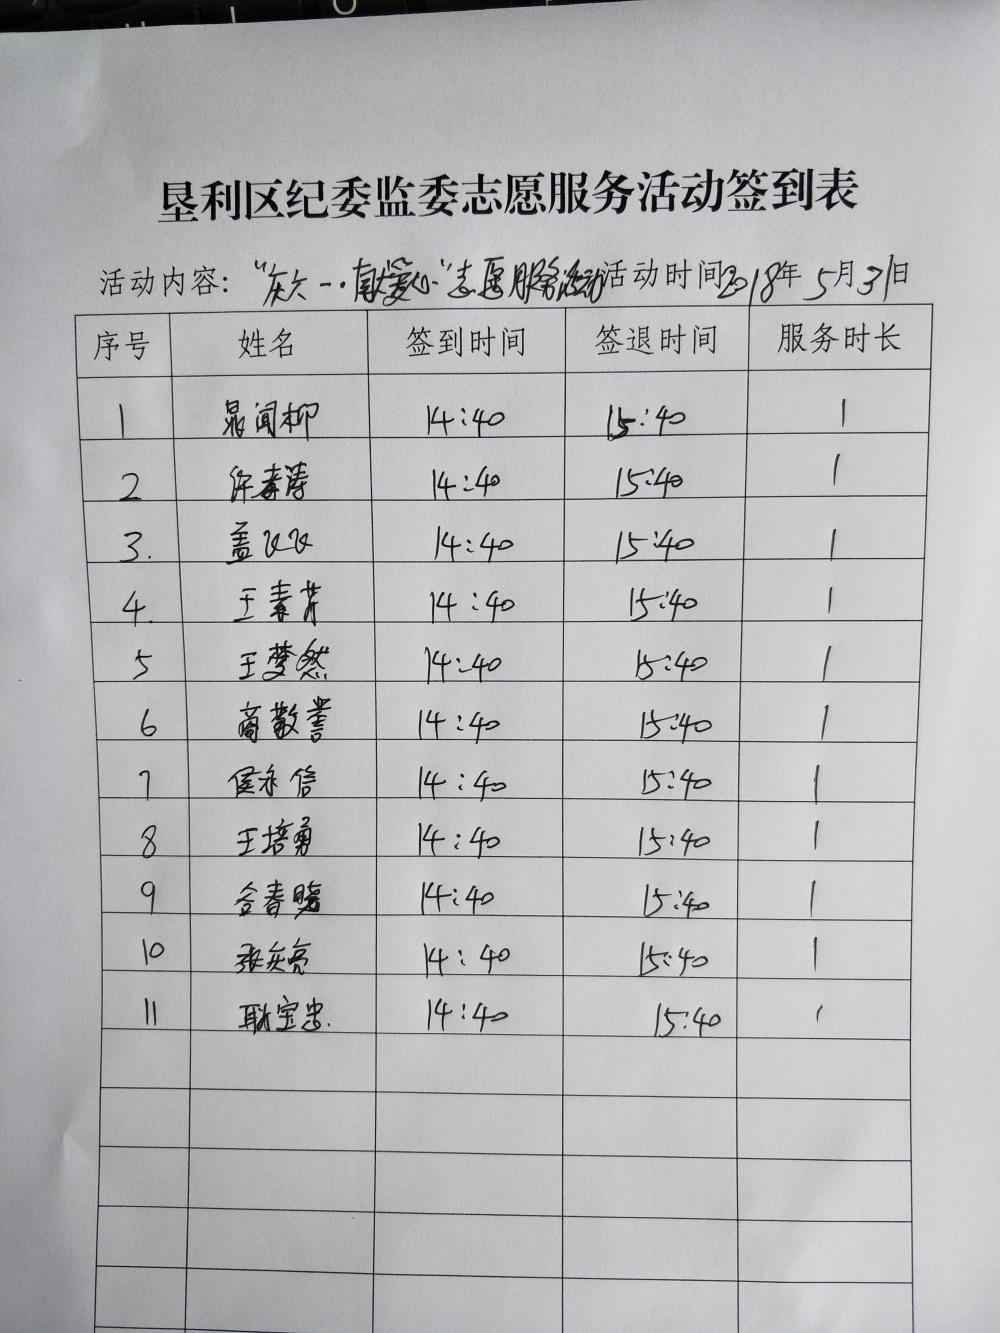 垦利区纪委监委志愿服务活动签到表
活动内容："庆六一·献爱心"志愿服务活动 活动时间2018年5月31日
序号 姓名 签到时间 签退时间 服务时长
1 晁闻柳 14:40 15:40 1
2 14:40 15:40 1
3. 盖飞飞 14:40 15:40 1
4. 王素芳 14:40 15:40 1
5 王梦然 14:40 15:40 1
6 商敬誉 14:40 15:40 1
7 侯永信 14:40 15:40 1
8 王培勇 14:40 15:40 1
9 14:40 15:40 1
10 张庆亮 14:40 15:40 1
11 耿宝忠. 14:40 15:40 1